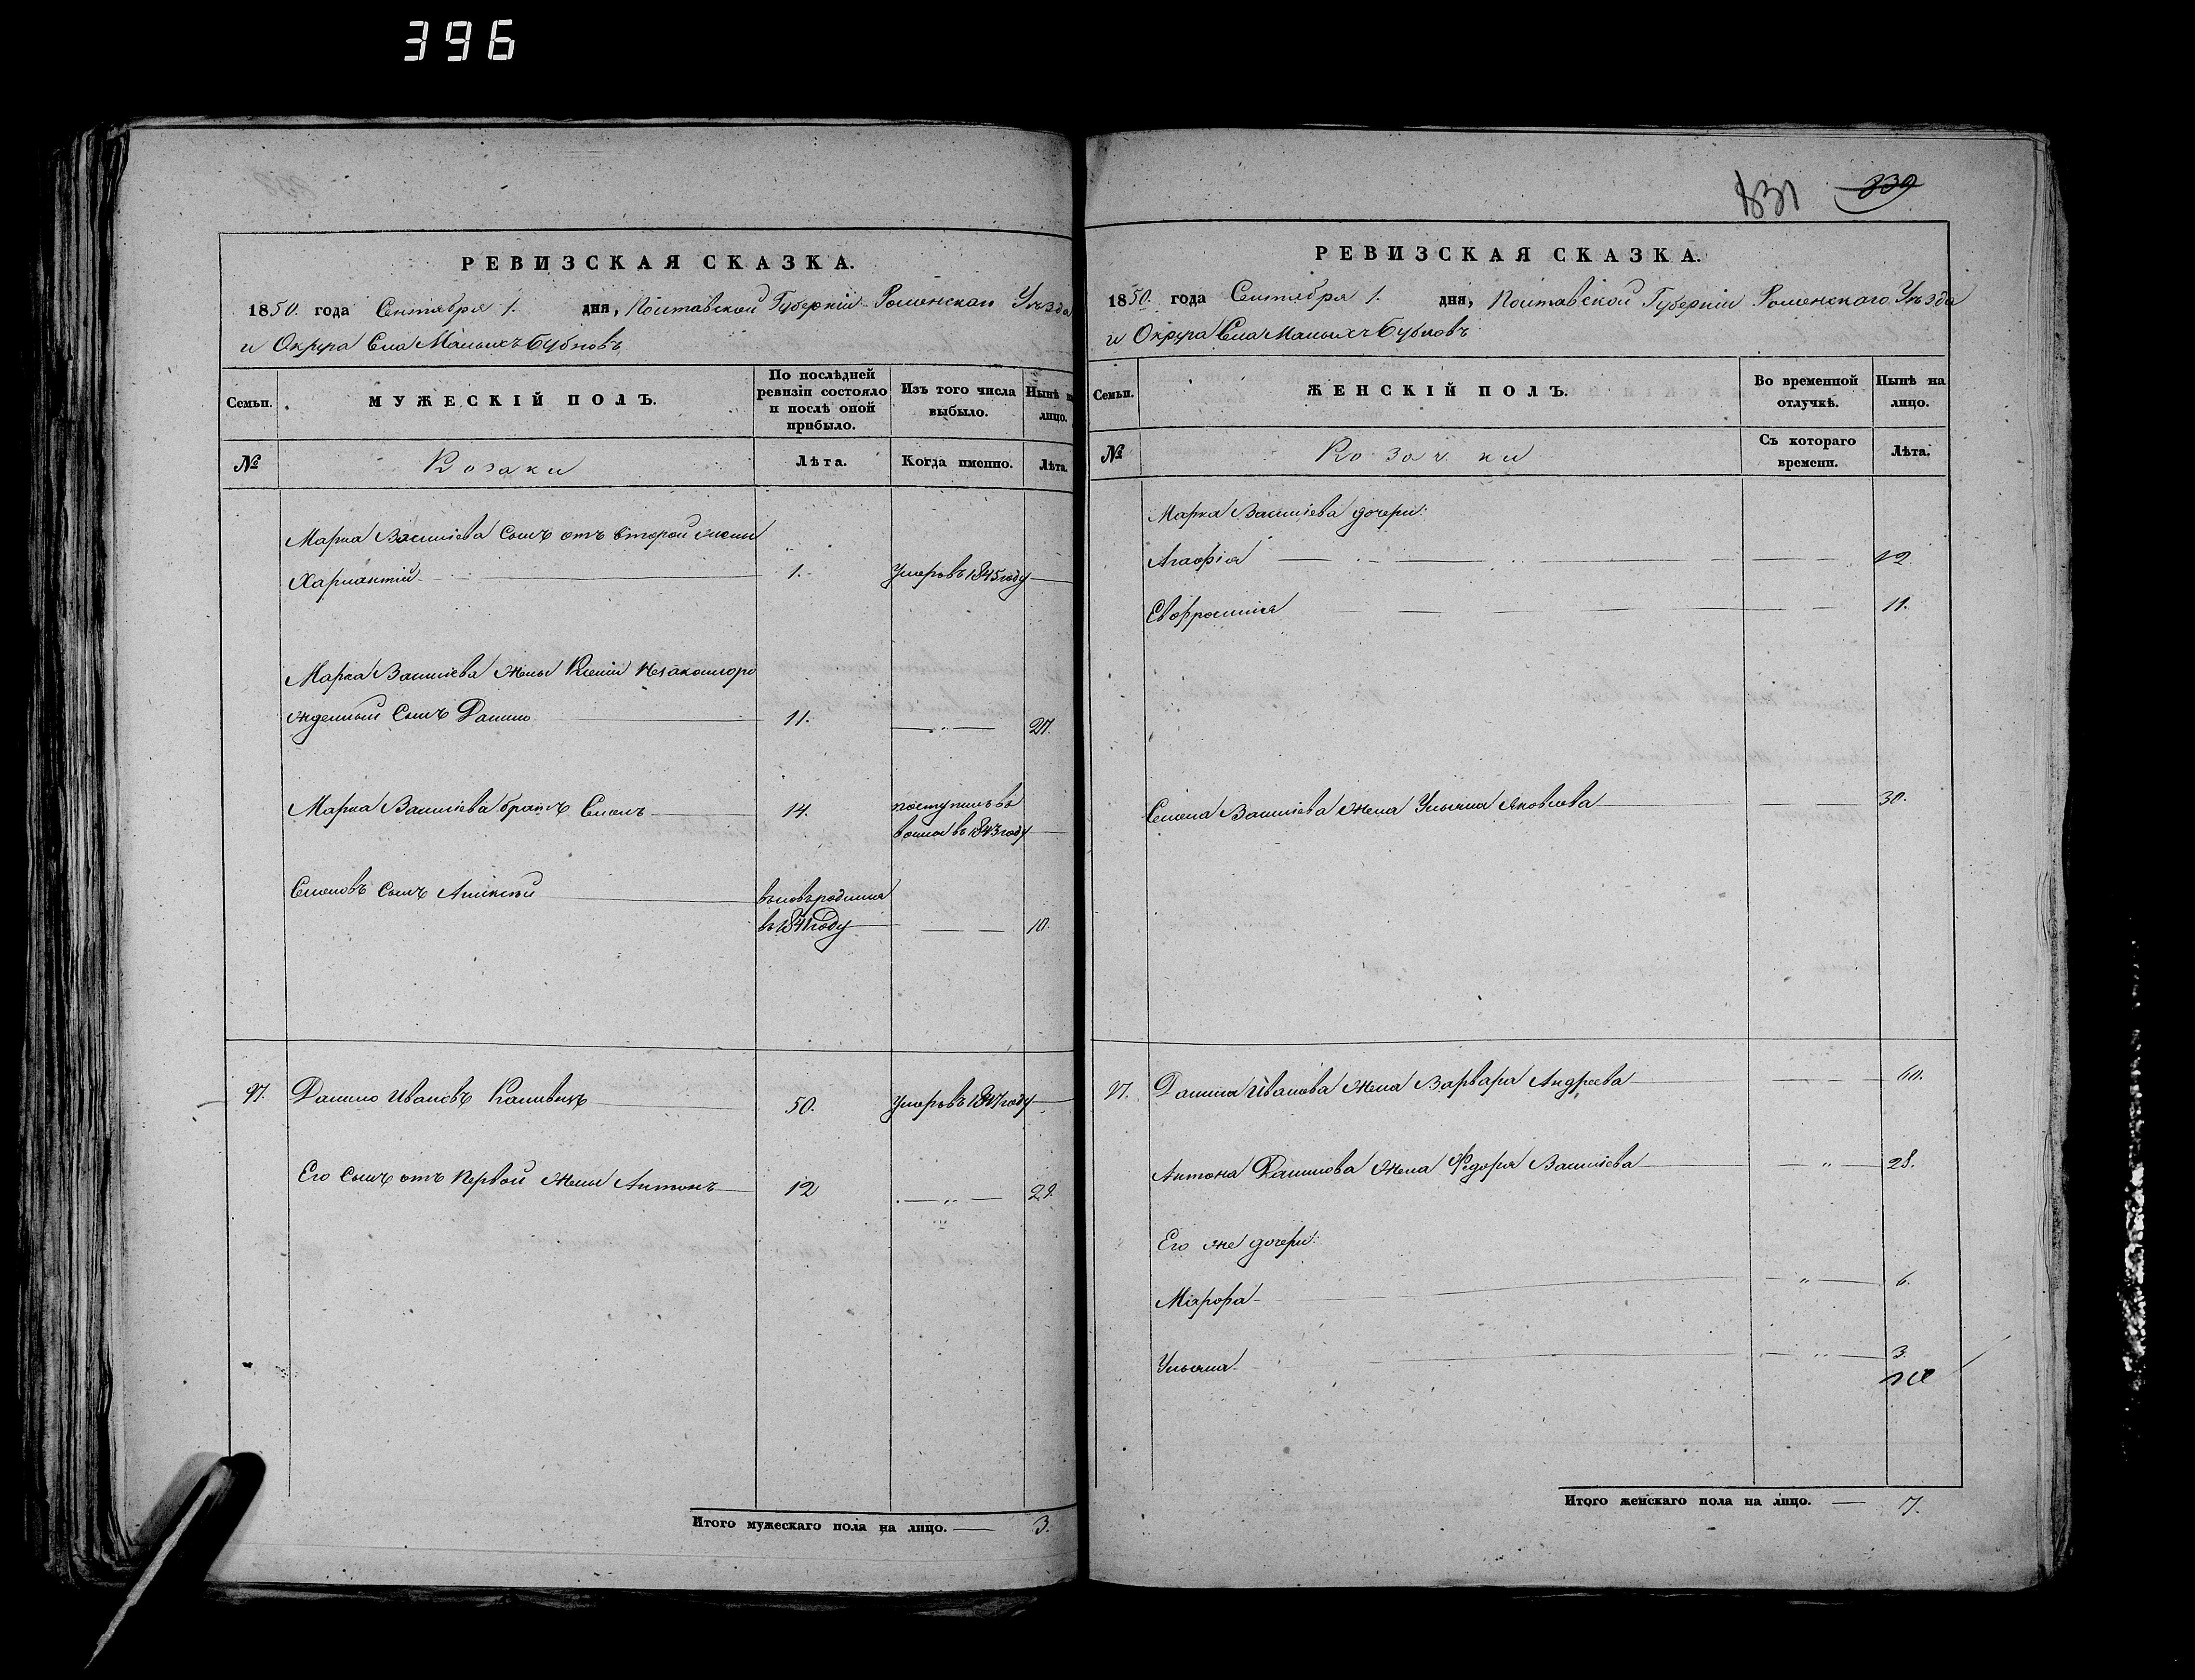 396
РЕВИЗСКАЯ СКАЗКА.
1850. года Сентября 1. дня, Полтавской Губерніи Роменскаго Уѣзда
и Округа Села Малыхъ Бубновъ
Семьи.
МУЖЕСКІЙ ПОЛЪ.
По послѣдней ревизіи состояло и послѣ оной прибыло.
Изъ того числа выбыло.
Нынѣ на лицо.
№
Козаки
Лѣта.
Когда именно.
Лѣта.
Марка Василіева сынъ отъ второй жены
Харлампій 1. Умеръ въ 1845 году
Марка Василіева жены Ксеніи незаконноро
жденный сынъ Данило 11. 27.
Марка Василіева братъ Семенъ 14. поступилъ въ
въ 1843 году
Семеновъ сынъ Алексѣй вновь родился
въ 1841 году 10.
97. Данило Ивановъ 50. Умеръ въ 1847 году
Его сынъ отъ первой жены Антонъ 12 29.
Итого мужескаго пола на лицо. 3.
831 839
РЕВИЗСКАЯ СКАЗКА.
1850. года Сентября 1. дня, Полтавской Губерніи Роменскаго Уѣзда
и Округа Села Малыхъ Бубновъ
Семьи.
ЖЕНСКІЙ ПОЛЪ.
Во временной отлучкѣ.
Нынѣ на лицо.
№
Козачки
Съ котораго времени.
Лѣта.
Марка Василіева дочери:
Агафія 12.
Евфросинія 11.
Семена Василіева жена Ульяна Яковлева 30.
97. Данила Иванова жена Варвара Андреева 60.
Антона Данилова жена Федора Василіева 28.
Его же дочери:
6.
Ульяна 3.
Итого женскаго пола на лицо. 7.